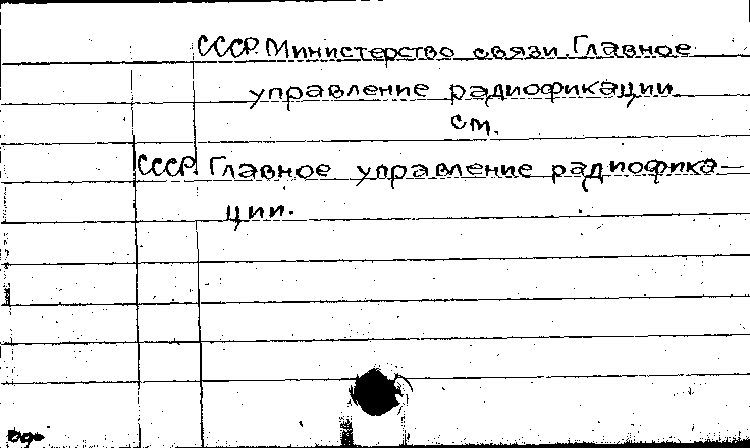 СССР. Министерство связи. Главное
управление радиофикации
см.
СССР. Главное управление радиофика-
ции.